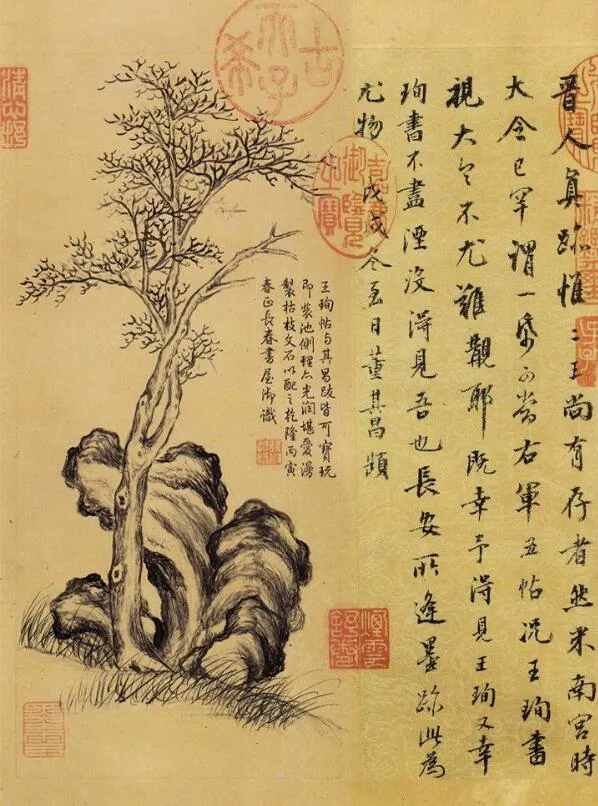 晉人真跡惟二王尚有存者然米南宮時
大令已罕謂一帋可當右軍五帖況王珣書
視大令不尤難覯耶既幸予得見王珣又幸
珣書不盡湮沒得見吾也長安所逢墨跡此為
尤物 戊戌冬至日董其昌題
王珣帖與其昌跋皆可寶玩
即裝池側理亦光潤堪愛漫
製枯枝文石以配之乾隆丙寅
春正長春書屋御識
古希天子
嘉慶御覽之寶
煙雲舒卷